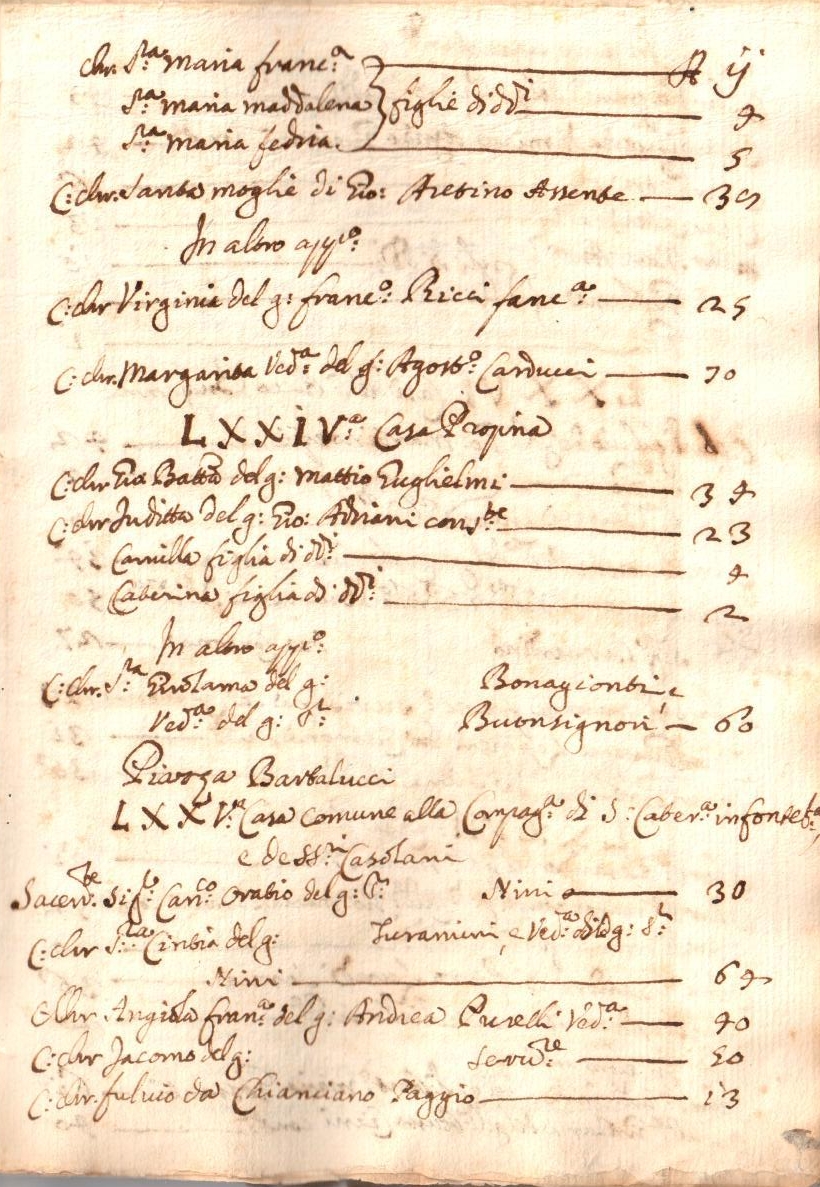 chr. S.ra Maria Franc.a — A ij
S.ra Maria Maddalena figlie di dd.i — 4
S.ra Maria Fedria — 5
C: chr. Santa moglie di Gio: Aretino Assente — 35
In altro app.o:
C: chr Virginia del g: Franc.o Ricci fanc.a — 25
C: chr. Margarita Ved.a del g: Agost.o Carducci — 70
LXXIV.a Casa Propina
C: chr Gio Batta del g: Mattio Guglielmi — 34
C: chr Juditta del g: Gio: Adriani cons.te — 23
Camilla figlia di dd.i — 4
Caterina figlia di dd.i — 2
In altro app.o:
C: chr. S.ra Girolama del g: Bonagionti, e
Ved.a del g: S.r Buonsignori — 60
Piazza Bartalucci
LXXV.a Casa comune alla Compag.a di S: Cater.a in fonteb.a,
e de SS.ri Casolani
Sacerd.te Sig.r Can.co Oratio del g: S.r Nini — 30
C: chr S.ra Cintia del g: Turamini, e Ved.a del g: S.r
Nini — 64
C: chr Angiola Fran.a del g: Andrea Ved.a — 40
C: chr Jacomo del g: Serv.re — 50
C: chr. Fulvio da Chianciano Paggio — 13